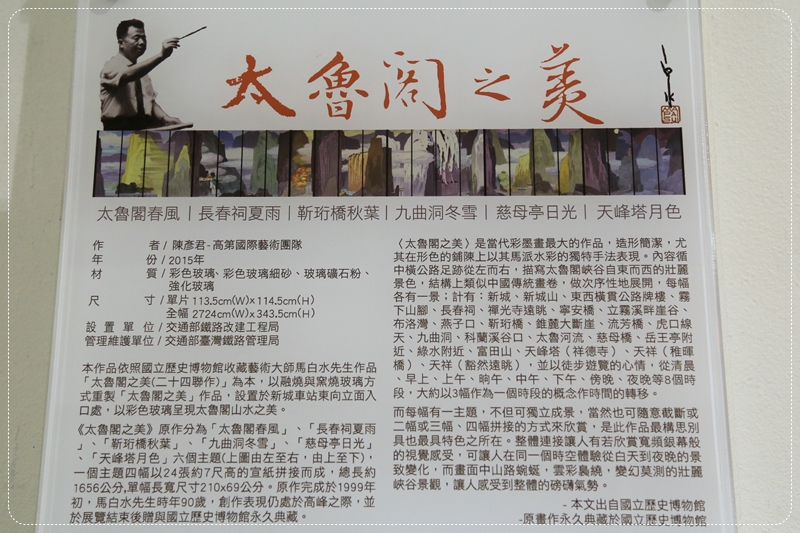 太魯閣之美
太魯閣春風｜長春祠夏雨｜靳珩橋秋葉｜九曲洞冬雪｜慈母亭日光｜天峰塔月色
作者/陳彥君-高第國際藝術團隊
年代/2015年
材質/彩色玻璃、彩色玻璃細砂、玻璃礦石粉、
強化玻璃
尺寸/單片113.5cm(W)x114.5cm(H)
全幅2724cm(W)x343.5cm(H)
設置單位/交通部鐵路改建工程局
管理維護單位/交通部臺灣鐵路管理局
本作品依照國立歷史博物館收藏藝術大師馬白水先生作品
「太魯閣之美(二十四聯作)」為本，以融燒與窯燒玻璃方
式重製「太魯閣之美」作品，設置於新城車站東向立面入
口處，以彩色玻璃呈現太魯閣山水之美。
《太魯閣之美》原作分為「太魯閣春風」、「長春祠夏雨
」、「靳珩橋秋葉」、「九曲洞冬雪」、「慈母亭日光」
、「天峰塔月色」六個主題(上圖由左至右，由上至下)，
一個主題四幅以24張約7尺高的宣紙拼接而成，總長約
1656公分,單幅長寬尺寸210x69公分。原作完成於1999年
初，馬白水先生時年90歲，創作表現仍處於高峰之際，並
於展覽結束後贈與國立歷史博物館永久典藏。
〈太魯閣之美〉是當代彩墨畫最大的作品，造形簡潔，尤
其在形色的鋪陳上以其馬派水彩的獨特手法表現。內容循
中橫公路足跡從左而右，描寫太魯閣峽谷自東而西的壯麗
景色，結構上類似中國傳統畫卷，做次序性地展開，每幅
各有一景；計有：新城、新城山、東西橫貫公路牌樓、霧
下山腳、長春祠、禪光寺遠眺、寧安橋、立霧溪畔崖谷、
布洛灣、燕子口、靳珩橋、錐麓大斷崖、流芳橋、虎口線
天、九曲洞、科蘭溪谷口、太魯河流、慈母橋、岳王亭附
近、綠水附近、富田山、天峰塔（祥德寺）、天祥（稚暉
橋）、天祥（豁然遠眺），並以徒步遊覽的心情，從清
晨、早上、上午、晌午、中午、下午、傍晚、夜晚等8個時
段，大約以3幅作為一個時段的概念作時間的轉移。
而每幅有一主題，不但可獨立成景，當然也可隨意截斷或
二幅或三幅、四幅拼接的方式來欣賞，是此作品最構思別
具也最具特色之所在。整體連接讓人有若欣賞寬頻銀幕般
的視覺感受，可讓人在同一個時空體驗從白天到夜晚的景
致變化，而畫面中山路蜿蜒，雲彩裊繞，變幻莫測的壯麗
峽谷景觀，讓人感受到整體的磅礡氣勢。
- 本文出自國立歷史博物館
-原畫作永久典藏於國立歷史博物館